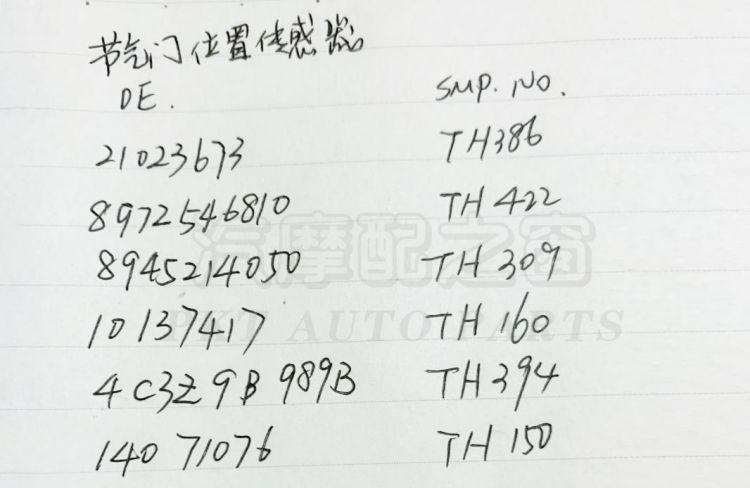 节气门位置传感器
OE. SMP. NO.
21023673 TH386
8972546810 TH 422
8945214050 TH 309
10137417 TH 160
4C3Z 9B 989B TH 394
140 71076 TH 150
汽摩配之窗
PKT AUTO PARTS